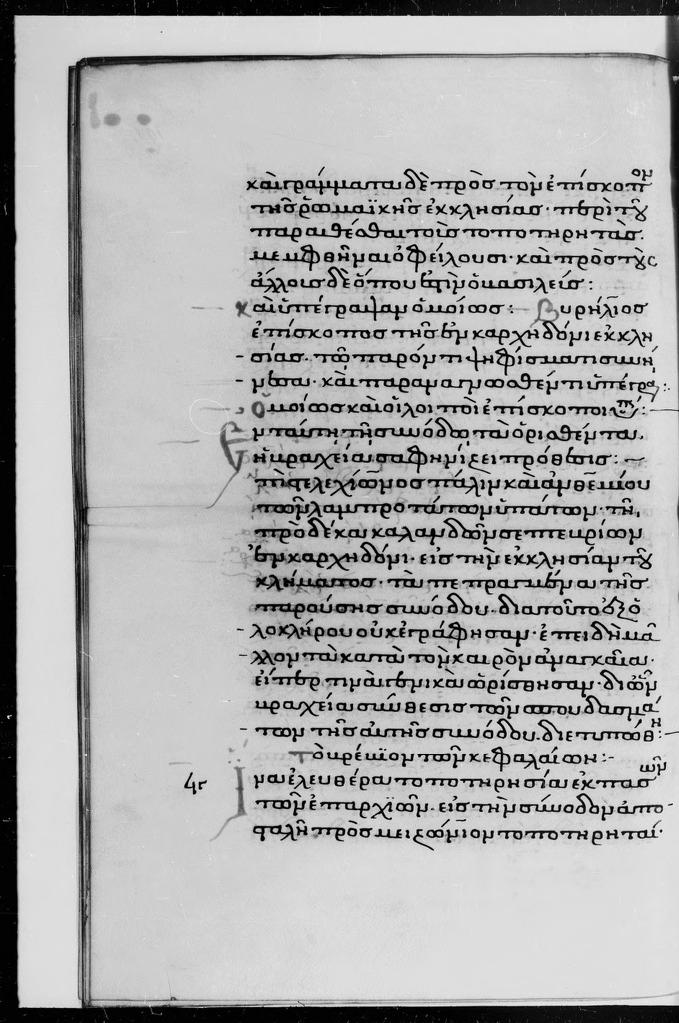 καὶ γράμματα δὲ πρὸς τὸν ἐπίσκοπον
τῆς ῥωμαϊκῆς ἐκκλησίας· περὶ τοῦ
παραιθέσθαι τοῖς τοποτηρητὰς
πεμφθῆναι ὀφείλουσι· καὶ πρὸς τοὺς
ἄλλοις δὲ ὅπου εἰσὶν ὁ βασιλεύς:
καὶ ὑπέγραψαν ὁμοίως:– Αυρήλιος
ἐπίσκοπος τῆς ἐν καρχηδόνι ἐκκλη
σίας· τῶ παρόντι ψηφίσματι συνή
νεσα· καὶ παραναγνωσθέντι ὑπέγρα
ὁμοίως καὶ οἱ λοιποὶ ἐπίσκοποι
Ἐν ταύτη τῆ συνόδω τὰ ὁρισθέντα,
ἡ βραχεῖα σαφηνίζει πρόθεσις:–
τῆς στελεχίωνος πάλιν καὶ ἀνθεμίου
τῶν λαμπροτάτων ὑπάτων· τῆ
πρὸ δέκα καλανδῶν σεπτευρίων
ἐν καρχηδόνι· εἰς τὴν ἐκκλησίαν τοῦ
κλήματος· τὰ πεπραγμένα τῆς
παρούσης συνόδου· διὰ τοῦτο ἐξ ὁ
λοκλήρου οὐκ ἐγράφησαν· ἐπειδὴ μᾶ
λλον τὰ κατὰ τὸν καιρὸν ἀναγκαῖα·
εἴπερ τινὰ γενικὰ ὡρίσθησαν· διὸ ἡ
βραχεῖα σύνθεσις τῶν σπουδασμά
των τῆς αὐτῆς συνόδου διετυπώθη:
Τὸ βρέβϊον τῶν κεφαλαίων:–
ϟϛ Ἵνα ἐλευθέρα τοποτηρησία ἐκ πασῶν
τῶν ἐπαρχιῶν· εἰς τὴν σύνοδον ἀπο
σταλῆ πρὸς μειζώνιον τοποτηρηταί·